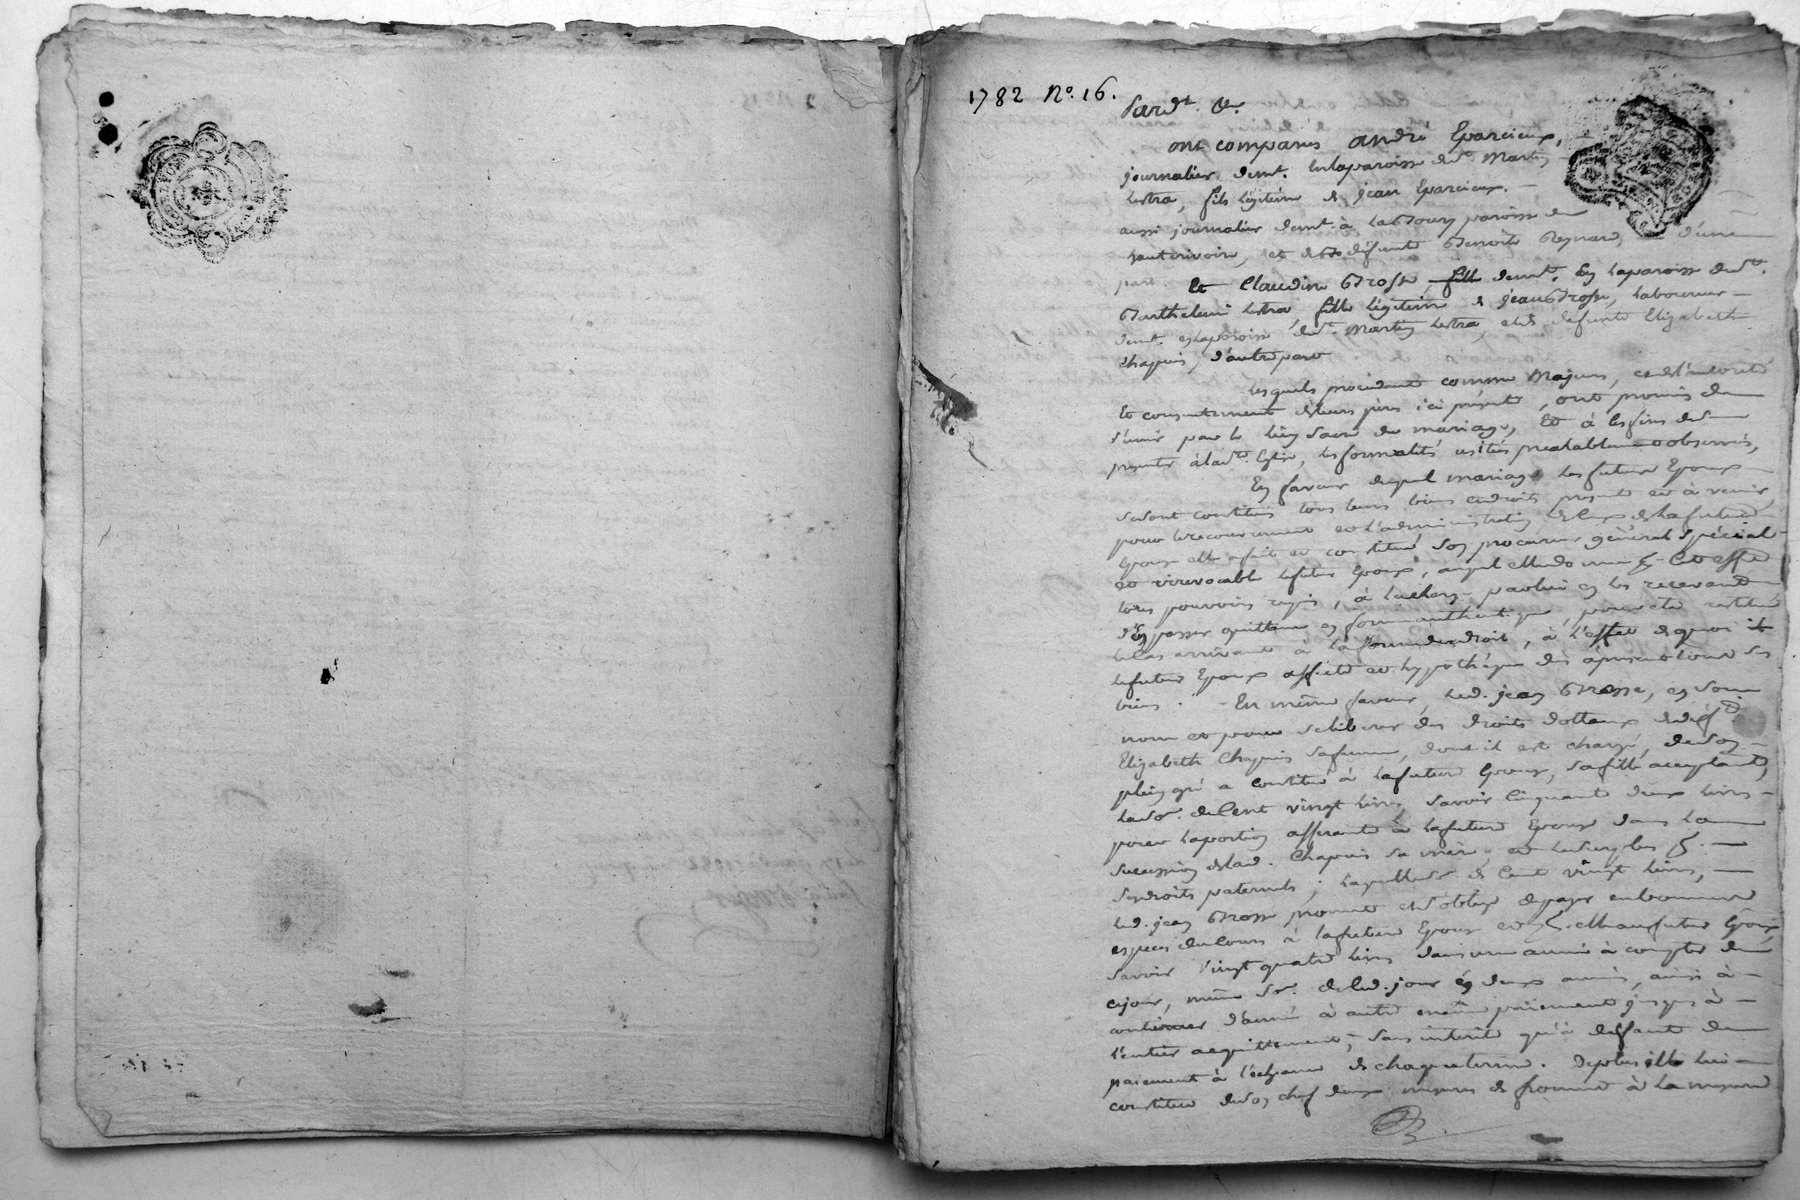 1782 N°. 16.
Pard.t &c.
ont comparus andré Eparcieux,
journalier demt. en la paroisse de St. Martin
Lestra, fils légitime de jean Eparcieux.
aussi journalier demt. à paroisse de
hauterivoire, et de défunte Benoite Reynard, d'une
part
Et Claudine Brosse, fille demt. en la paroisse de St.
Barthelemi Lestra fille légitime de jean Brosse, laboureur
demt. en la paroisse de St. Martin Lestra, et de défunte Elizabeth
Chapuis, d'autre part
Lesquels procédant comme Majeurs, et de l'autorité
Et consentement de leurs pères ici présents, ont promis de
s'unir par le lien sacré du mariage, Et à les fins de se
présenter à la Ste. Eglise, les formalités usitées préalablement observées,
En faveur duquel mariage les futurs Epoux
se sont constitués tous leurs biens et droits présents et à venir,
pour le recouvrement et l'administration de ceux de la future
Epouse elle a fait et constitué son procureur général spécial
et irrévocable le futur Epoux, auquel elle donne à cet effet
tous pouvoirs requis, à la charge par lui en les recevant
d'en passer quittance en forme authentique, pour être restitué
le cas arrivant à la forme du droit, à l'effet de quoi
le futur Epoux affecte et hypothèque dès à présent tous ses
biens. En même faveur, led. jean Brosse, en son
nom et pour se libérer des droits dottaux de déf.te
Elizabeth Chapuis sa femme, dont il est chargé, de son
plein gré a constitué à la future Epouse, sa fille acceptante,
la so.e de Cent vingt livres, savoir Cinquante deux livres
pour la portion afférante à la future Epouse dans la
succession de lad. Chapuis sa mère, et le surplus
ses droits paternels; laquelle so.e de Cent vingt livres,
led. jean Brosse promet et s'oblige de payer en bonnes
espèces du cours à la future Epouse et au futur Epoux,
savoir vingt quatre livres dans une année à compter de
ce jour, même so.e dud. jour en deux années, ainsi à
continuer d'année à autre même paiement jusques à
l'entier acquittement, sans intérêt qu'à deffaut de
paiement à l'échéance de chaque terme. De plus il lui
constitue de son chef deux mesures de froment à la mesure